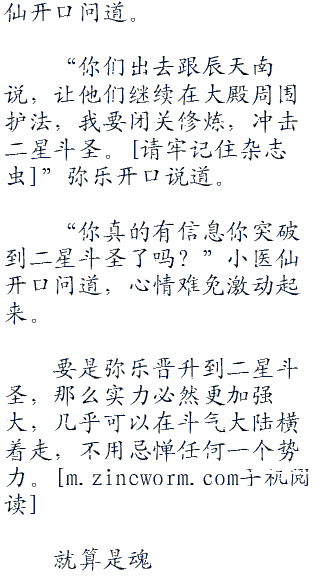 仙开口问道。
“你们出去跟辰天南
说，让他们继续在大殿周围
护法，我要闭关修炼，冲击
二星斗圣。[请牢记住杂志
虫]”弥乐开口说道。
“你真的有信息你突破
到二星斗圣了吗？”小医仙
开口问道，心情难免激动起
来。
要是弥乐晋升到二星斗
圣，那么实力必然更加强
大，几乎可以在斗气大陆横
着走，不用忌惮任何一个势
力。[m.zincworm.com手机阅
读]
就算是魂